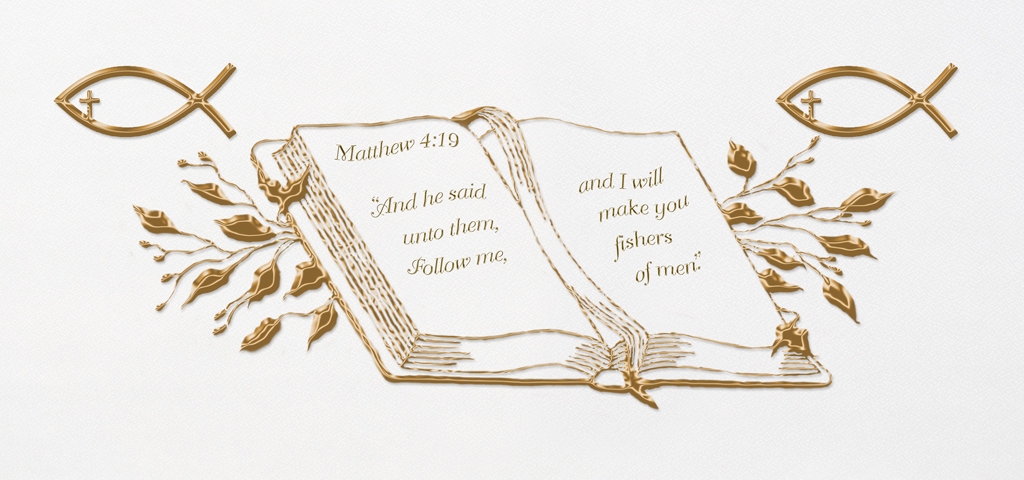 Matthew 4:19
“And he said
unto them,
Follow me,
and I will
make you
fishers
of men.”